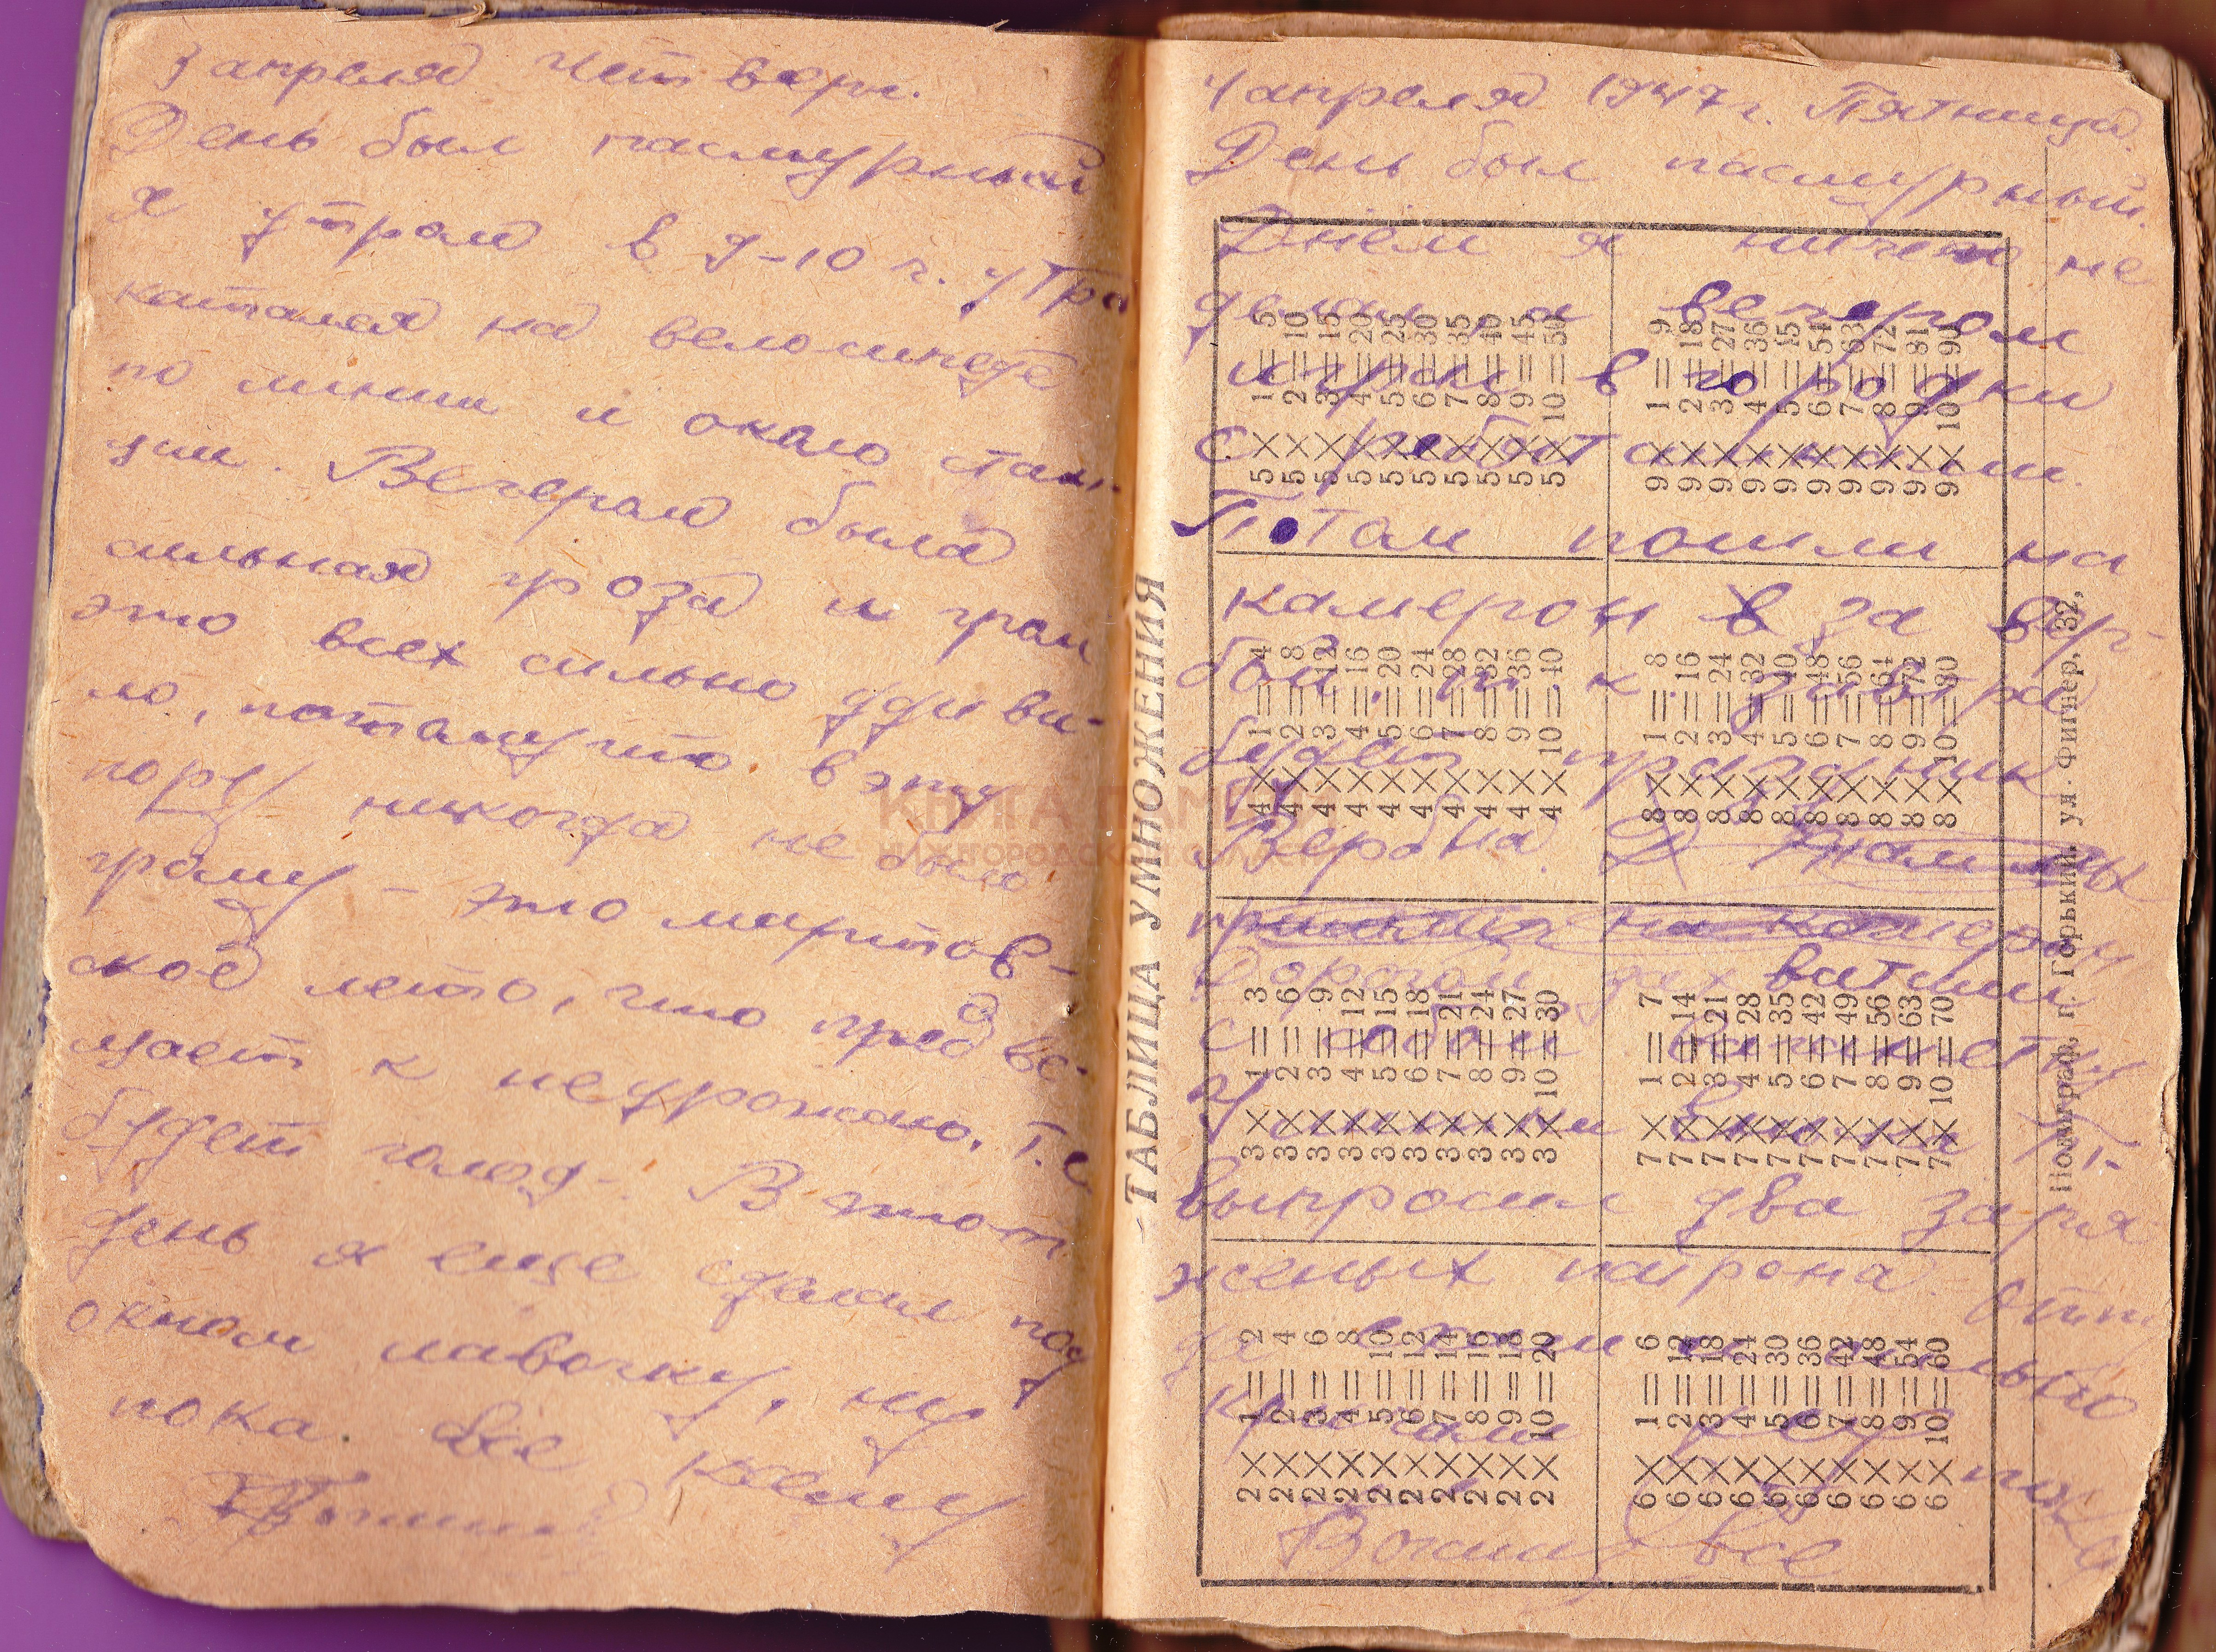 3 апреля Четверг.
День был пасмурный
я утром в 9-10 г. утра
катался на велосипеде
по линии и около стан-
ции. Вечером была
сильная гроза и гром
это всех сильно удиви-
ло, потамучто в эту
пору никогда не было
грому - это мартов-
ское лето, что предве-
щает к неурожаю. т.е
будет голод. В этот
день я еще сделал под
окном лавочку, ну
пока все
4 апреля 1947 г. Пятница.
День был пасмурный.
Днём я ничего не
делал, а вечером
играл в городки
с ребятами.
Потом пошли на
камерон в за вер-
бой. т. к. завтра
будет праздник
Верба.
на камерон
Дорогой захватили
с собой
У
выпросил два заря
женых патрона.
да
кричали ну пока
все
ТАБЛИЦА УМНОЖЕНИЯ
5 × 1 = 5
5 × 2 = 10
5 × 3 = 15
5 × 4 = 20
5 × 5 = 25
5 × 6 = 30
5 × 7 = 35
5 × 8 = 40
5 × 9 = 45
5 × 10 = 50
9 × 1 = 9
9 × 2 = 18
9 × 3 = 27
9 × 4 = 36
9 × 5 = 45
9 × 6 = 54
9 × 7 = 63
9 × 8 = 72
9 × 9 = 81
9 × 10 = 90
4 × 1 = 4
4 × 2 = 8
4 × 3 = 12
4 × 4 = 16
4 × 5 = 20
4 × 6 = 24
4 × 7 = 28
4 × 8 = 32
4 × 9 = 36
4 × 10 = 40
8 × 1 = 8
8 × 2 = 16
8 × 3 = 24
8 × 4 = 32
8 × 5 = 40
8 × 6 = 48
8 × 7 = 56
8 × 8 = 64
8 × 9 = 72
8 × 10 = 80
3 × 1 = 3
3 × 2 = 6
3 × 3 = 9
3 × 4 = 12
3 × 5 = 15
3 × 6 = 18
3 × 7 = 21
3 × 8 = 24
3 × 9 = 27
3 × 10 = 30
7 × 1 = 7
7 × 2 = 14
7 × 3 = 21
7 × 4 = 28
7 × 5 = 35
7 × 6 = 42
7 × 7 = 49
7 × 8 = 56
7 × 9 = 63
7 × 10 = 70
2 × 1 = 2
2 × 2 = 4
2 × 3 = 6
2 × 4 = 8
2 × 5 = 10
2 × 6 = 12
2 × 7 = 14
2 × 8 = 16
2 × 9 = 18
2 × 10 = 20
6 × 1 = 6
6 × 2 = 12
6 × 3 = 18
6 × 4 = 24
6 × 5 = 30
6 × 6 = 36
6 × 7 = 42
6 × 8 = 48
6 × 9 = 54
6 × 10 = 60
Полиграф, г. Горький, ул. Фигнер, 32,
КНИГА ПАМЯТИ
НИЖЕГОРОДСКОЙ ОБЛАСТИ